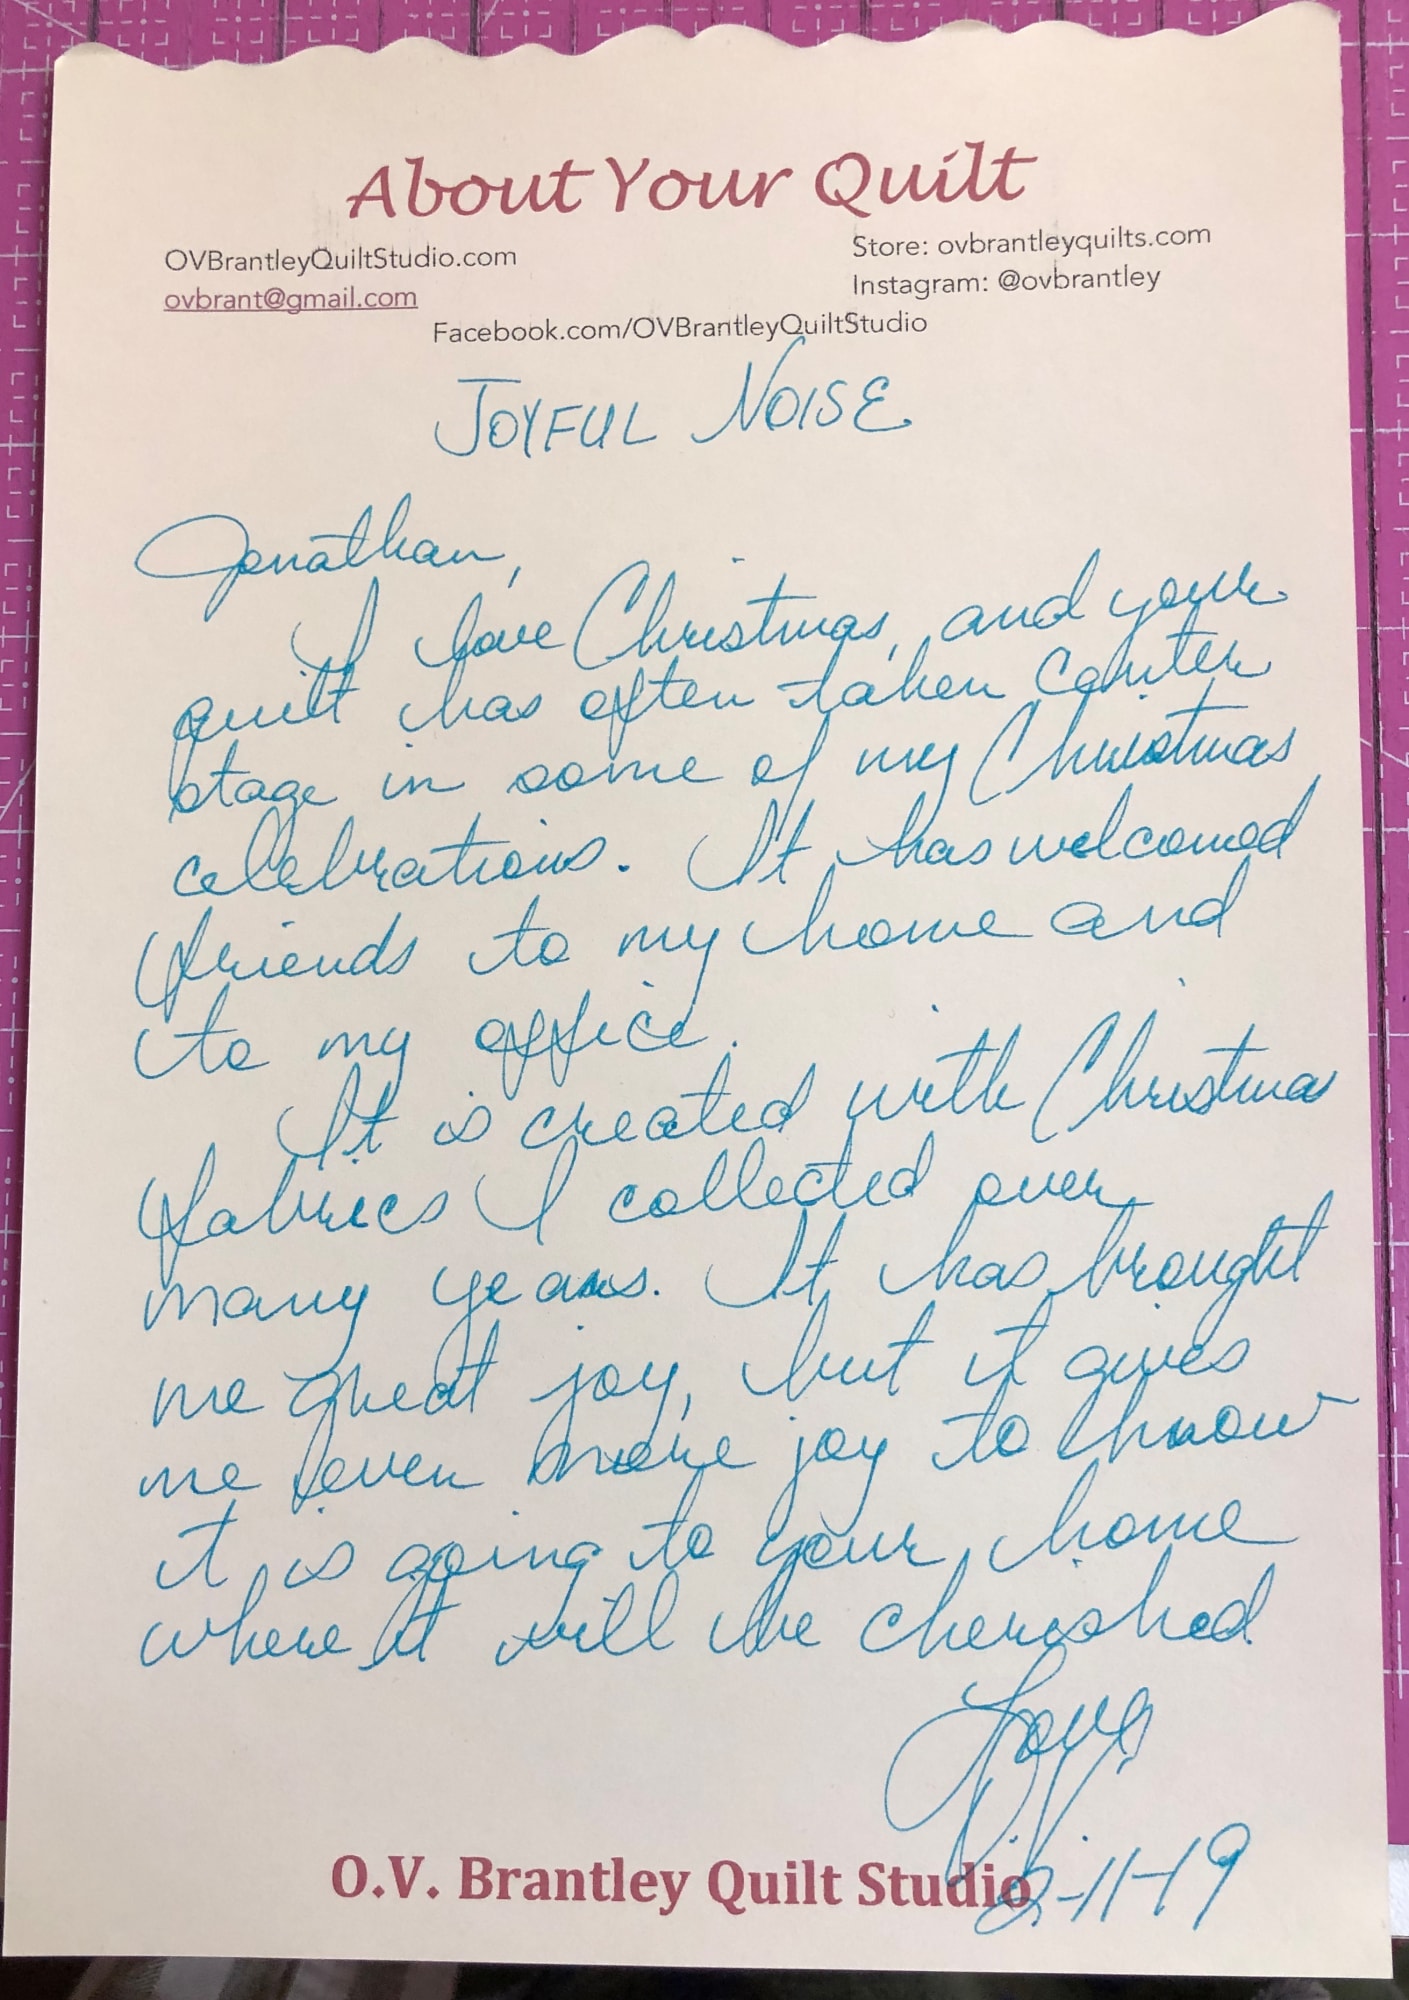 About Your Quilt
OVBrantleyQuiltStudio.com
ovbrant@gmail.com
Store: ovbrantleyquilts.com
Instagram: @ovbrantley
Facebook.com/OVBrantleyQuiltStudio
JOYFUL NOISE
Jonathan,
I love Christmas, and your
quilt has often taken center
stage in some of my Christmas
celebrations. It has welcomed
friends to my home and
to my office.
It is created with Christmas
fabrics I collected over
many years. It has brought
me great joy, but it gives
me even more joy to know
it is going to your home
where it will be cherished
Love
O.V.
2-11-19
O.V. Brantley Quilt Studio